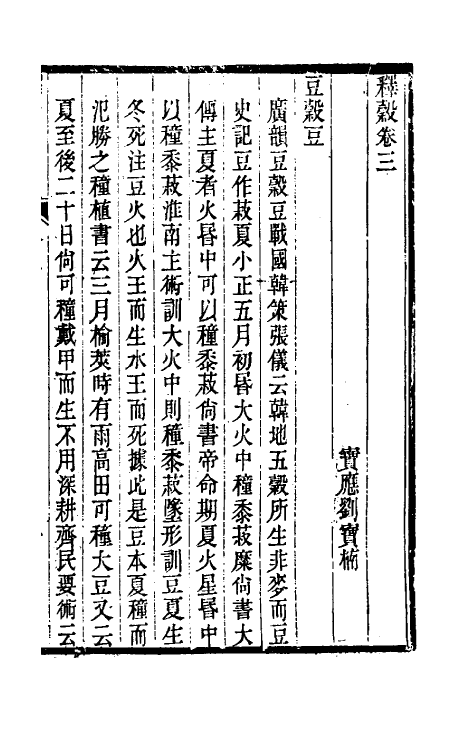 釋穀卷三
寶應劉寶楠
豆穀豆
廣韻豆穀豆戰國韓策張儀云韓地五穀所生非麥而豆
史記豆作菽夏小正五月初昏大火中種黍菽糜尙書大
傳主夏者火昏中可以種黍菽尙書帝命期夏火星昏中
以種黍菽淮南主術訓大火中則種黍菽墬形訓豆夏生
冬死注豆火也火王而生水王而死據此是豆本夏種而
氾勝之種植書云三月榆莢時有雨高田可種大豆又云
夏至後二十日尙可種戴甲而生不用深耕齊民要術云